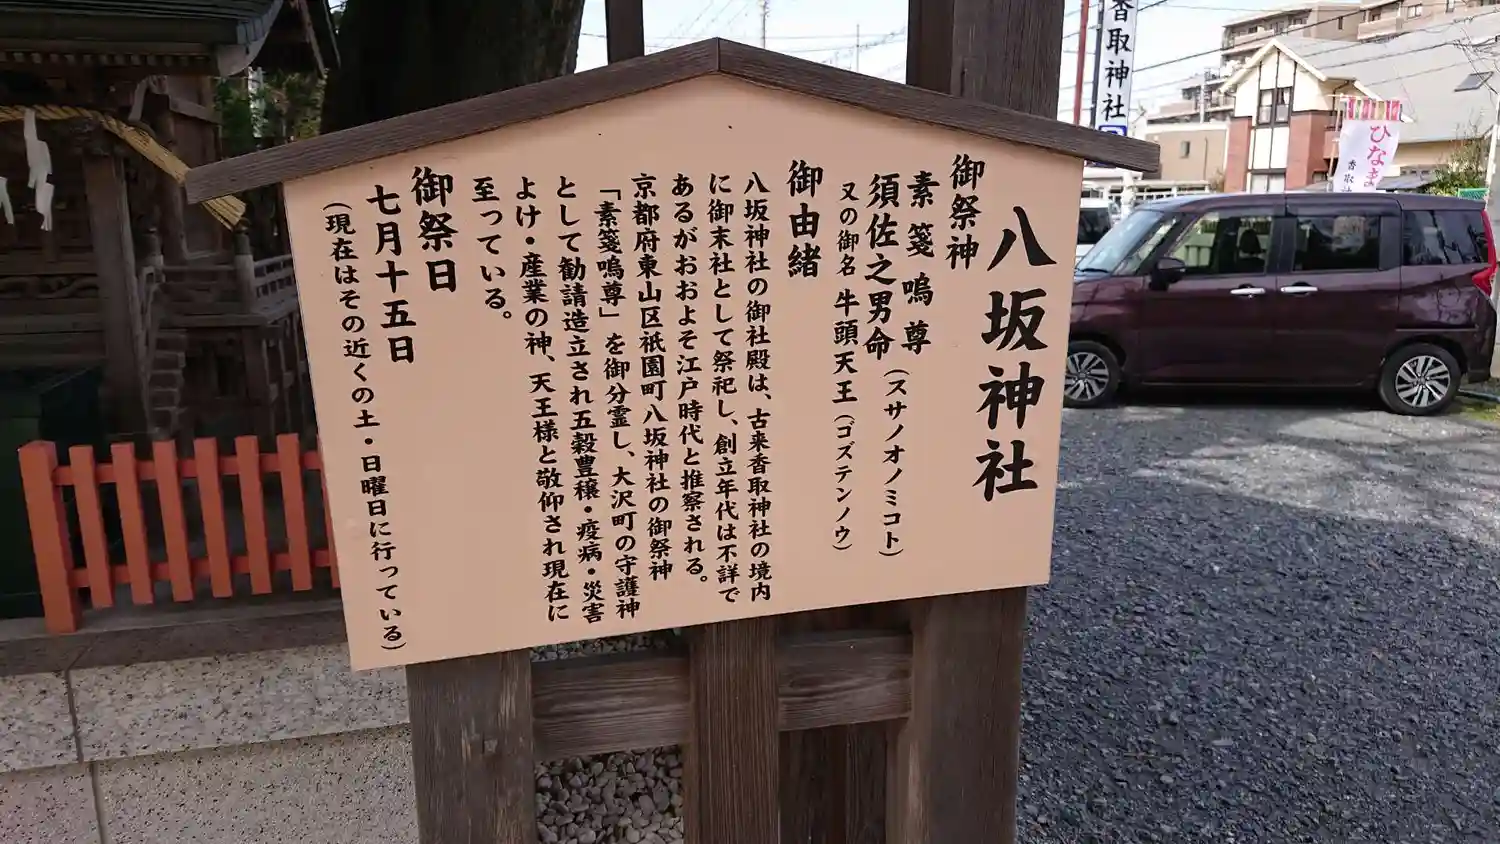 八坂神社
御祭神
素箋嗚尊
須佐之男命（スサノオノミコト）
又の御名 牛頭天王（ゴズテンノウ）
御由緒
八坂神社の御社殿は、古来香取神社の境内
に御末社として祭祀し、創立年代は不詳で
あるがおおよそ江戸時代と推察される。
京都府東山区祇園町八坂神社の御祭神
「素箋嗚尊」を御分霊し、大沢町の守護神
として勧請造立され五穀豊穣・疫病・災害
よけ・産業の神、天王様と敬仰され現在に
至っている。
御祭日
七月十五日
（現在はその近くの土・日曜日に行っている）
香取神社
ひなま
香取